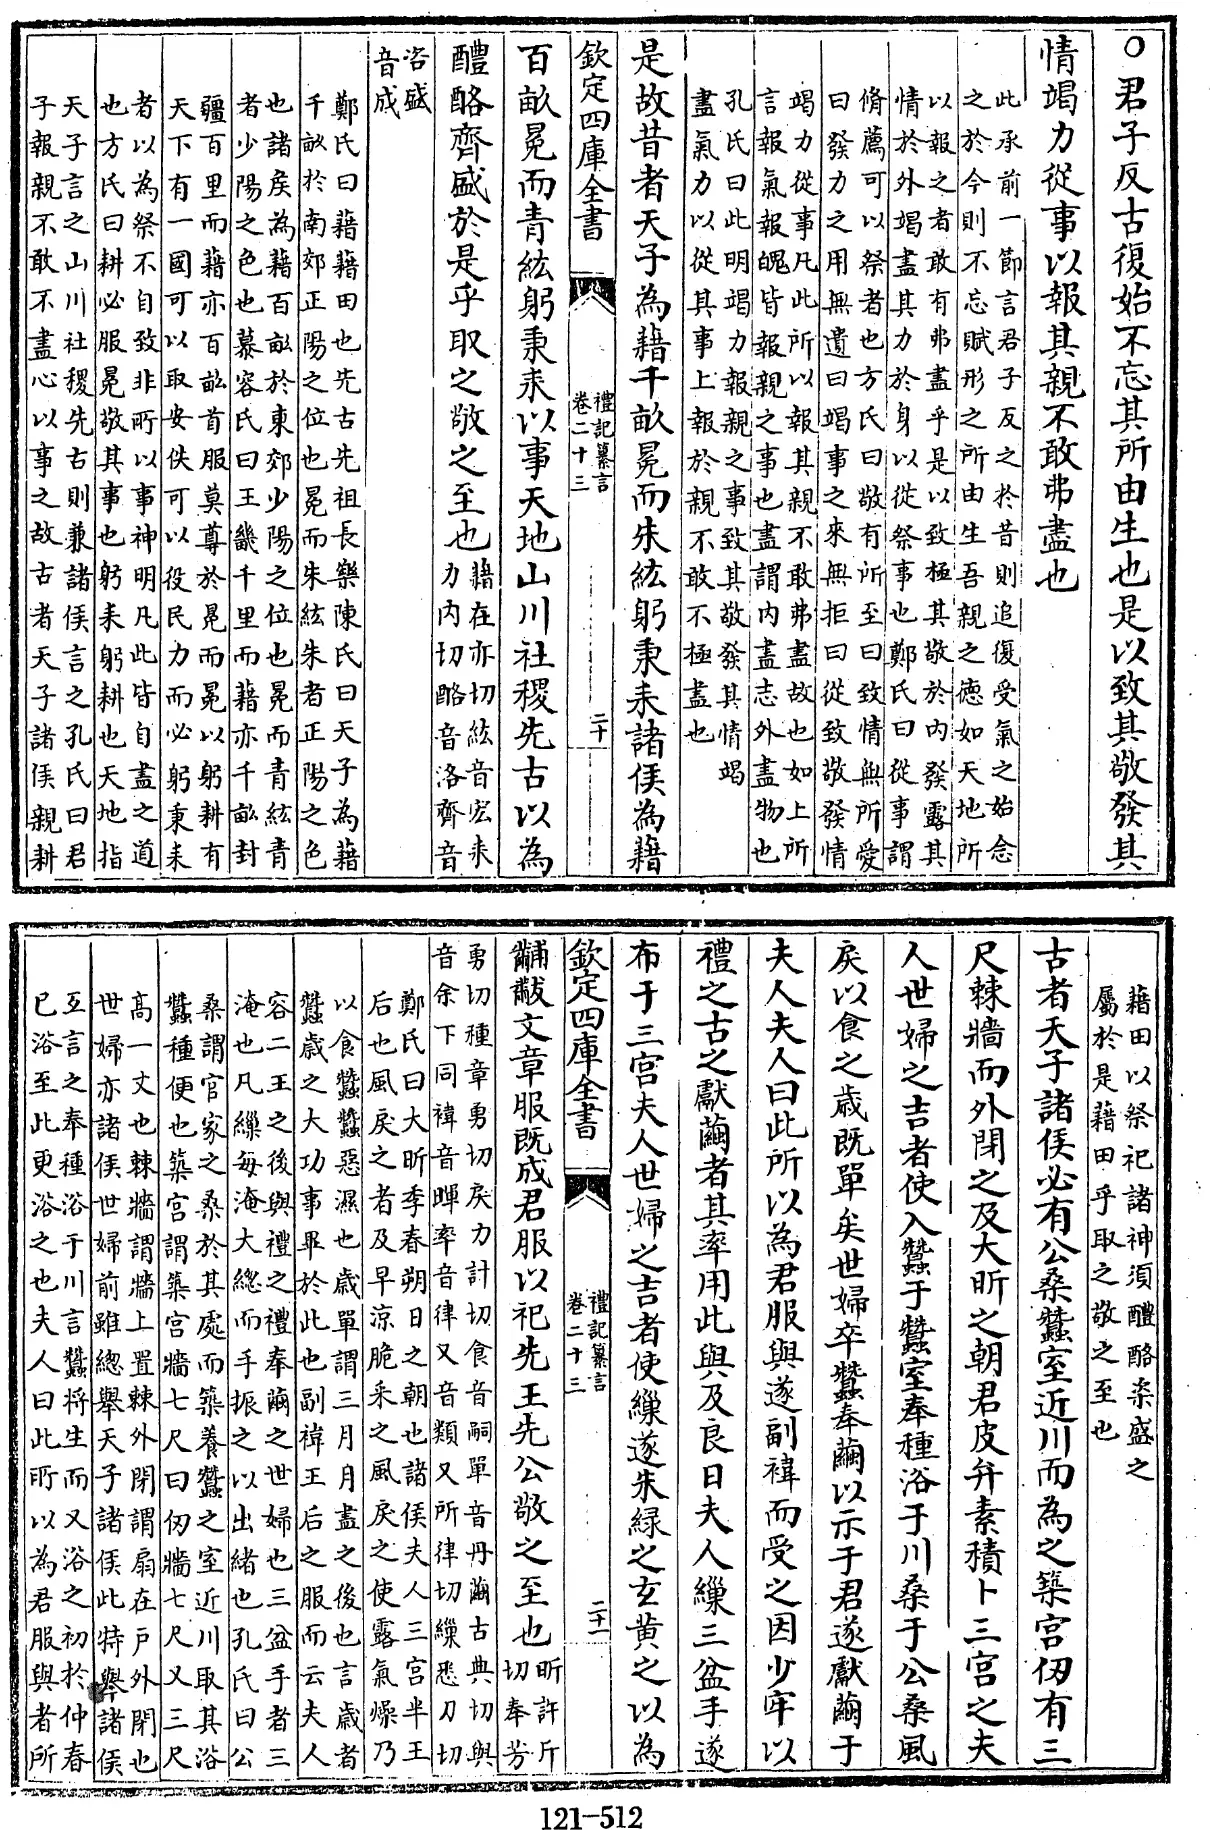 ○君子反古復始不忘其所由生也是以致其敬發其
情竭力從事以報其親不敢弗盡也
此承前一節言君子反之於昔則追復受氣之始念
之於今則不忘賦形之所由生吾親之德如天地所
以報之者敢有弗盡乎是以致極其敬於內發露其
情於外竭盡其力於身以從祭事也鄭氏曰從事謂
脩薦可以祭者也方氏曰敬有所至曰致情無所愛
曰發力之用無遺曰竭事之來無拒曰從致敬發情
竭力從事凡此所以報其親不敢弗盡故也如上所
言報氣報魄皆報親之事也盡謂內盡志外盡物也
孔氏曰此明竭力報親之事致其敬發其情竭
盡氣力以從其事上報於親不敢不極盡也
是故昔者天子為藉千畝冕而朱紘躬秉耒諸侯為藉
欽定四庫全書
禮記纂言
卷二十三
二十
百畝冕而青紘躬秉耒以事天地山川社稷先古以為
醴酪齊盛於是乎取之敬之至也
藉在亦切紘音宏耒
力內切酪音洛齊音
咨盛
音成
鄭氏曰藉藉田也先古先祖長樂陳氏曰天子為藉
千畝於南郊正陽之位也冕而朱紘朱者正陽之色
也諸侯為藉百畝於東郊少陽之位也冕而青紘青
者少陽之色也慕容氏曰王畿千里而藉亦千畝封
疆百里而藉亦百畝首服莫尊於冕而冕以躬耕有
天下有一國可以取安佚可以役民力而必躬秉耒
者以為祭不自致非所以事神明凡此皆自盡之道
也方氏曰耕必服冕敬其事也躬耒躬耕也天地指
天子言之山川社稷先古則兼諸侯言之孔氏曰君
子報親不敢不盡心以事之故古者天子諸侯親耕
藉田以祭祀諸神須醴酪粢盛之
屬於是藉田乎取之敬之至也
古者天子諸侯必有公桑蠶室近川而為之築宮仞有三
尺棘牆而外閉之及大昕之朝君皮弁素積卜三宮之夫
人世婦之吉者使入蠶于蠶室奉種浴于川桑于公桑風
戾以食之歲既單矣世婦卒蠶奉繭以示于君遂獻繭于
夫人夫人曰此所以為君服與遂副褘而受之因少牢以
禮之古之獻繭者其率用此與及良日夫人繅三盆手遂
布于三宮夫人世婦之吉者使繅遂朱緑之玄黃之以為
欽定四庫全書
禮記纂言
卷二十三
二十一
黼黻文章服既成君服以祀先王先公敬之至也
昕許斤
切奉芳
勇切種章勇切戾力計切食音嗣單音丹繭古典切與
音余下同褘音暉率音律又音類又所律切繅悉刀切
鄭氏曰大昕季春朔日之朝也諸侯夫人三宮半王
后也風戾之者及早涼脆采之風戾之使露氣燥乃
以食蠶蠶惡濕也歲單謂三月月盡之後也言歲者
蠶歲之大功事畢於此也副褘王后之服而云夫人
容二王之後與禮之禮奉繭之世婦也三盆手者三
淹也凡繅每淹大緫而手振之以出緒也孔氏曰公
桑謂官家之桑於其處而築養蠶之室近川取其浴
蠶種便也築宮謂築宮牆七尺曰仞牆七尺又三尺
高一丈也棘牆謂牆上置棘外閉謂扇在戶外閉也
世婦亦諸侯世婦前雖緫舉天子諸侯此特舉諸侯
互言之奉種浴于川言蠶将生而又浴之初於仲春
已浴至此更浴之也夫人曰此所以為君服與者所
121-512